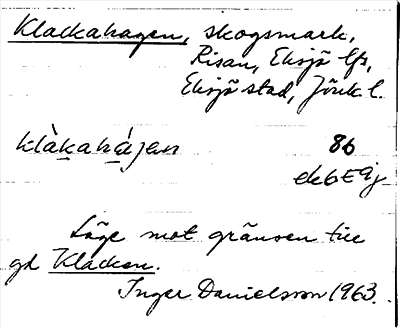 Klackahagen, skogsmark,
Risan, Eksjö lfs,
Eksjö stad, Jönk. l.
klàkahájen 86
ek6E9j
Läge mot gränsen till
gd Klacken.
Inger Danielsson 1963.